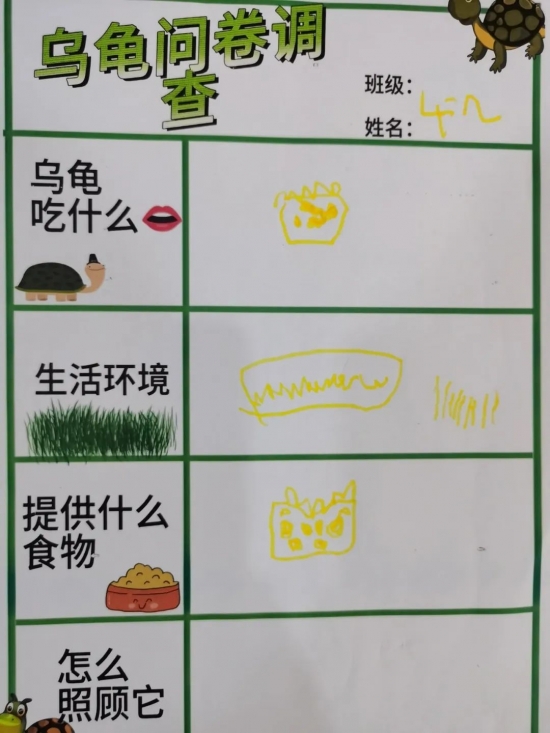 乌龟问卷调
查
班级：
姓名：
乌龟
吃什么
生活环境
提供什么
食物
怎么
照顾它